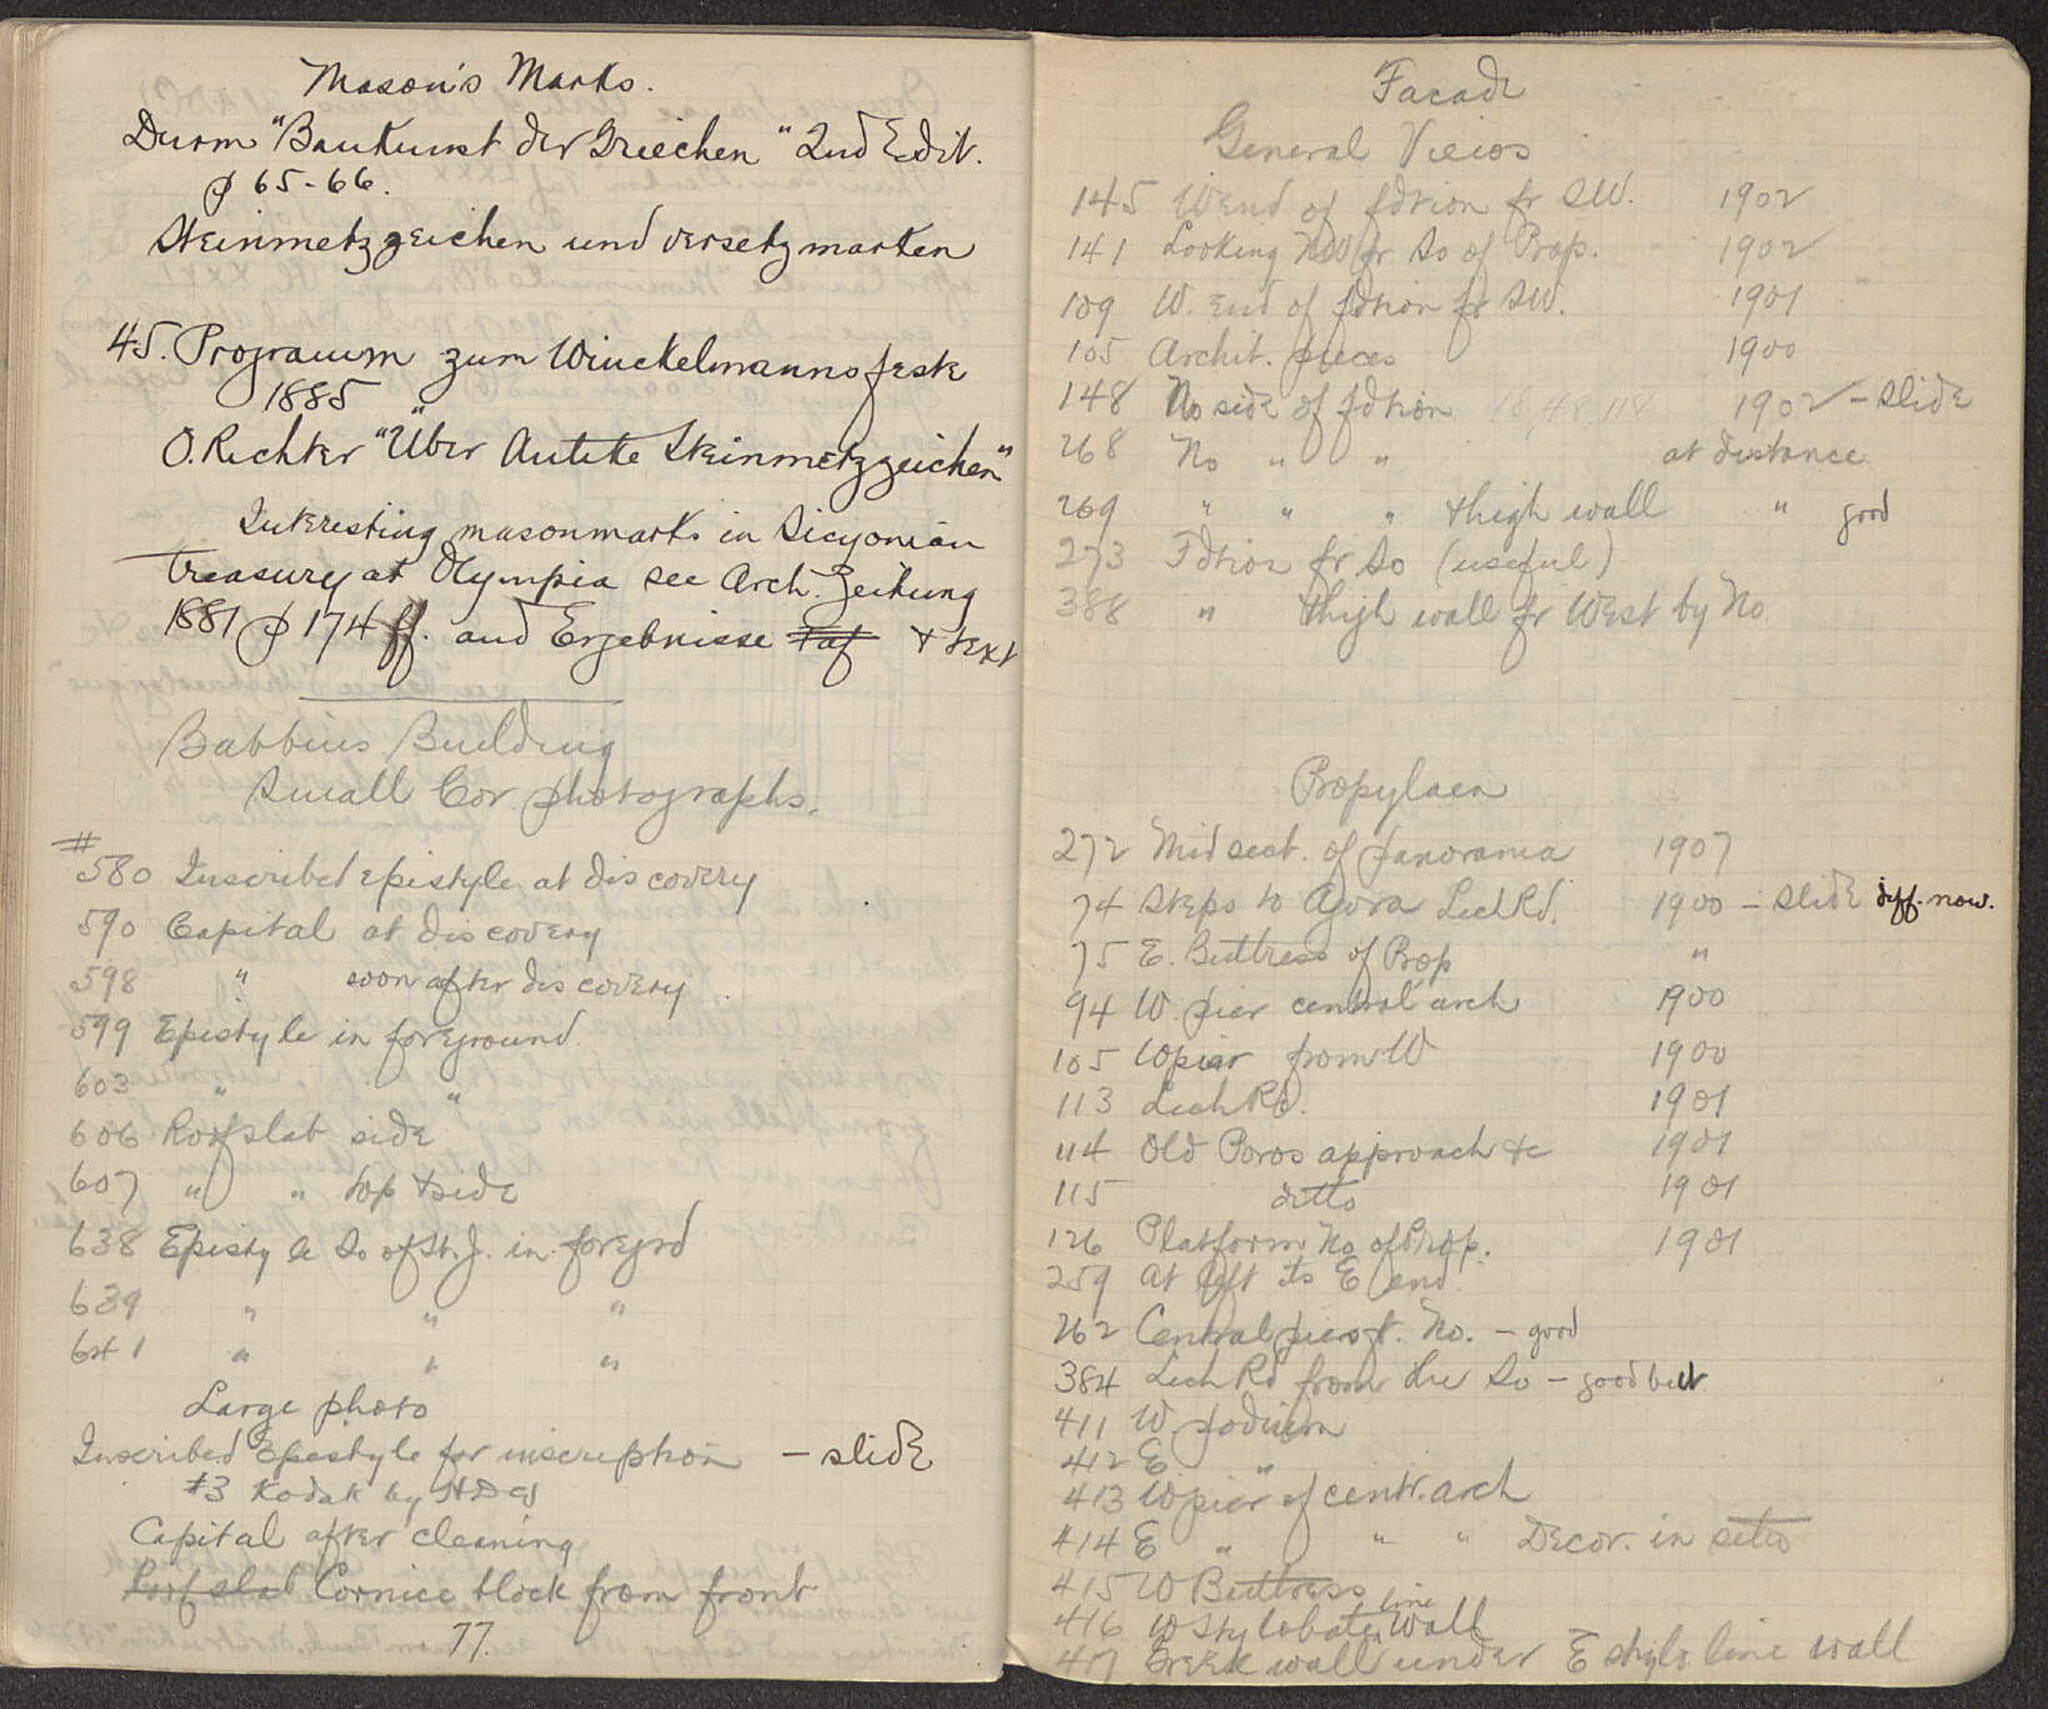 Mason's Marks.
Durm "Baukunst der Griechen" 2nd Edit.
p 65-66.
Steinmetzzeichen und versetzmarken
45. Programm zum Winckelmannsfeste
1885
O. Richter "Über Antike Steinmetzzeichen"
Interesting masonmarks in Sicyonian
Treasury at Olympia see Arch. Zeitung
1881 p 174 ff. and Ergebnisse Taf + text
Babbius Building
Small Cor. photographs.
#
580 Inscribed epistyle at discovery
590 Capital at discovery
598 " soon after discovery
599 Epistyle in foreground.
603 " "
606 Roof slab side
607 " " top + side
638 Epistyle So of St. J. in foregrd
639 " " "
641 " " "
Large photo
Inscribed Epistyle for inscription - slide
#3 Kodak by
Capital after cleaning
Roof slab Cornice block from front
77.
Facade
General Views
145 W end of fdtion fr SW. 1902
141 Looking NW fr So of Prop. 1902
109 W. end of fdtion fr SW. 1901
105 Archit. pieces 1900
148 No side of fdtion 1902 - slide
268 No " " at distance
269 " " " + high wall " good
273 Fdtion fr So (useful)
388 " + high wall fr West by No.
Propylaea
272 Mid sect. of panorama 1907
74 Steps to Agora Lech Rd. 1900 - slide diff. now.
75 E. Buttress of Prop "
94 W. pier central arch 1900
105 W pier from W 1900
113 Lech Rd. 1901
114 Old Poros approach +c 1901
115 ditto 1901
126 Platform No of Prop. 1901
259 at left its E end.
262 Central piers f. No. - good
384 Lech Rd from the So - good
411 W podium
412 E "
413 W pier of centr. arch
414 E " " " Decor. in situ
415 W Buttress
416 W Stylobate line Wall
417 Greek wall under E style line wall